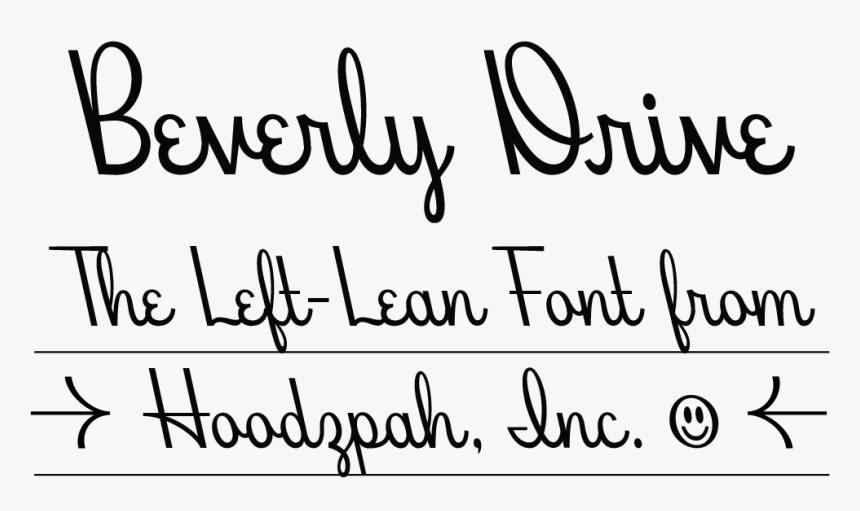 Beverly Drive
The Left-Lean Font from
→ Hoodzpah, Inc. ☺ ←